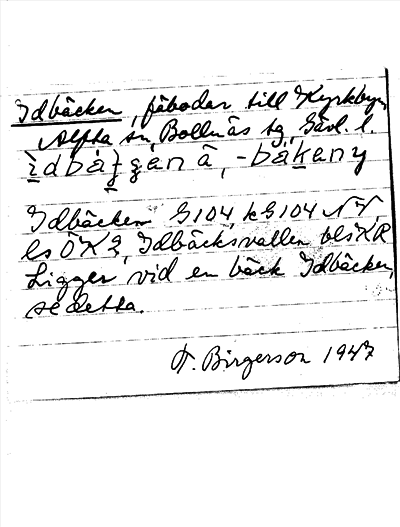 Idbäcken, fäbodar till Kyrkbyn,
Alfta sn, Bollnäs tg, Gävl. l.
ìdbä gän ä, -bäkeny
Idbäcken G104, kG104 NV,
ls ÖK2, Idbäcksvallen bl
Ligger vid en bäck Idbäcken,
se detta.
F. Birgerson 1947